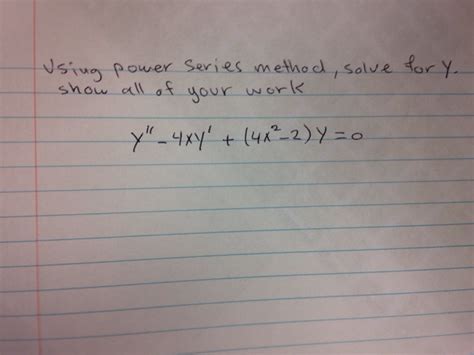 Using power series method, solve for y.
show all of your work
y'' - 4xy' + (4x² - 2) y = 0